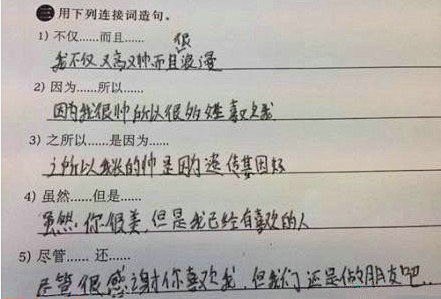 三 用下列连接词造句。
1) 不仅……而且……
很
我不仅又高又帅而且浪漫
2) 因为……所以……
因为我很帅所以很多姓喜欢我
3) 之所以……是因为……
之所以我长的帅是因为遗传基因好
4) 虽然……但是……
虽然你很美,但是我已经有喜欢的人
5) 尽管…… 还……
尽管很感谢你喜欢我,但我们还是做朋友吧..